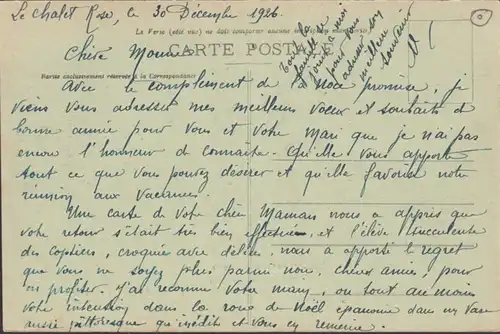 Le Chalet Rose, le 30 Décembre 1926.
La Verso (été vue) ne doit comporter aucune
CARTE POSTALE
Partie exclusivement réservée à la Correspondance
Chère
Avec le complément de la Noce promise, je
viens vous adresser mes meilleurs voeux et souhaits de
bonne année pour vous et votre Mari que je n'ai pas
encore l'honneur de connaître. Qu'Elle vous apporte
tout ce que vous pouvez désirer et qu'elle favorise notre
réunion aux Vacances.
Une carte de votre chère Maman nous a appris que
votre retour s'était très bien effectué, et l'élève succulente
des , croquée avec délices, nous a apporté le regret
que vous ne soyez plus parmi nous, chers amis, pour
en profiter. J'ai reconnu votre mary, ou tout au moins
votre intention dans la rose de Noël épanouie dans un Vase
aussi pittoresque qu'inédit et vous en remercie.
Toute la
famille se
joint à moi
pour vous
adresser son
meilleur
souvenir